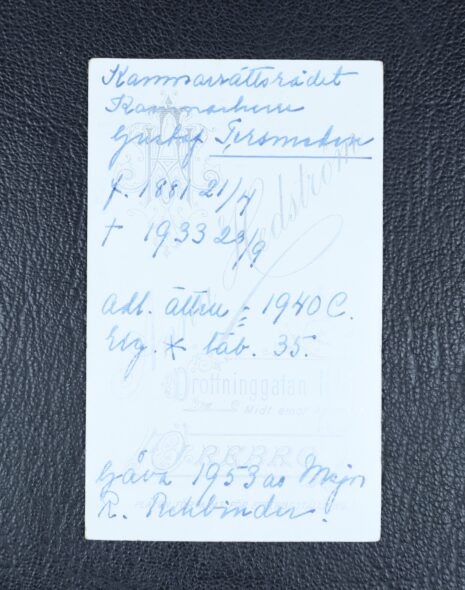 Kammarrättsrådet
Kammarherre
Gustaf Tersmeden
f. 1881 21/4
† 1933 23/9
Adl. ätten = 1940 C.
Elg. * tab. 35.
Hedström
Drottninggatan
Midt emot
ÖREBRO
Gåva 1953 av Major
R. Rehbinder.